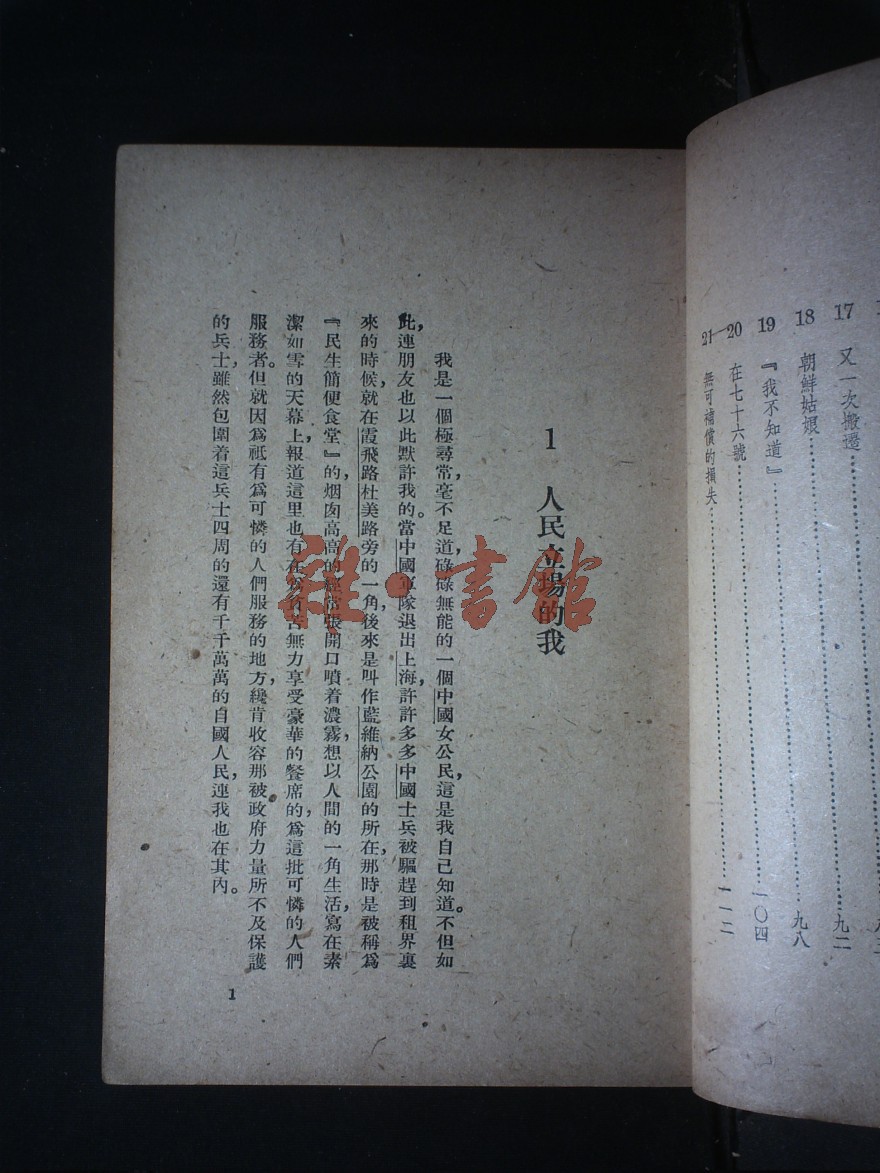 17 又一次搬遷……九二
18 朝鮮姑娘……九八
19 『我不知道』……一〇四
20 在七十六號……一一二
21 無可補償的損失
1 人民立場的我
我是一個極尋常,毫不足道,碌碌無能的一個中國女公民,這是我自己知道。不但如
此,連朋友也以此默許我的。當中國軍隊退出上海,許許多多中國士兵被驅趕到租界裏
來的時候,就在霞飛路杜美路旁的一角,後來是叫作藍維納公園的所在,那時是被稱爲
『民生簡便食堂』的,烟囱高高的經常張開口噴着濃霧,想以人間的一角生活,寫在素
潔如雪的天幕上,報道這里也有在爲貧苦無力享受豪華的餐席的,爲這批可憐的人們
服務者。但就因爲祇有爲可憐的人們服務的地方,纔肯收容那被政府力量所不及保護
的兵士,雖然包圍着這兵士四周的還有千千萬萬的自國人民,連我也在其內。
1
雜·書館